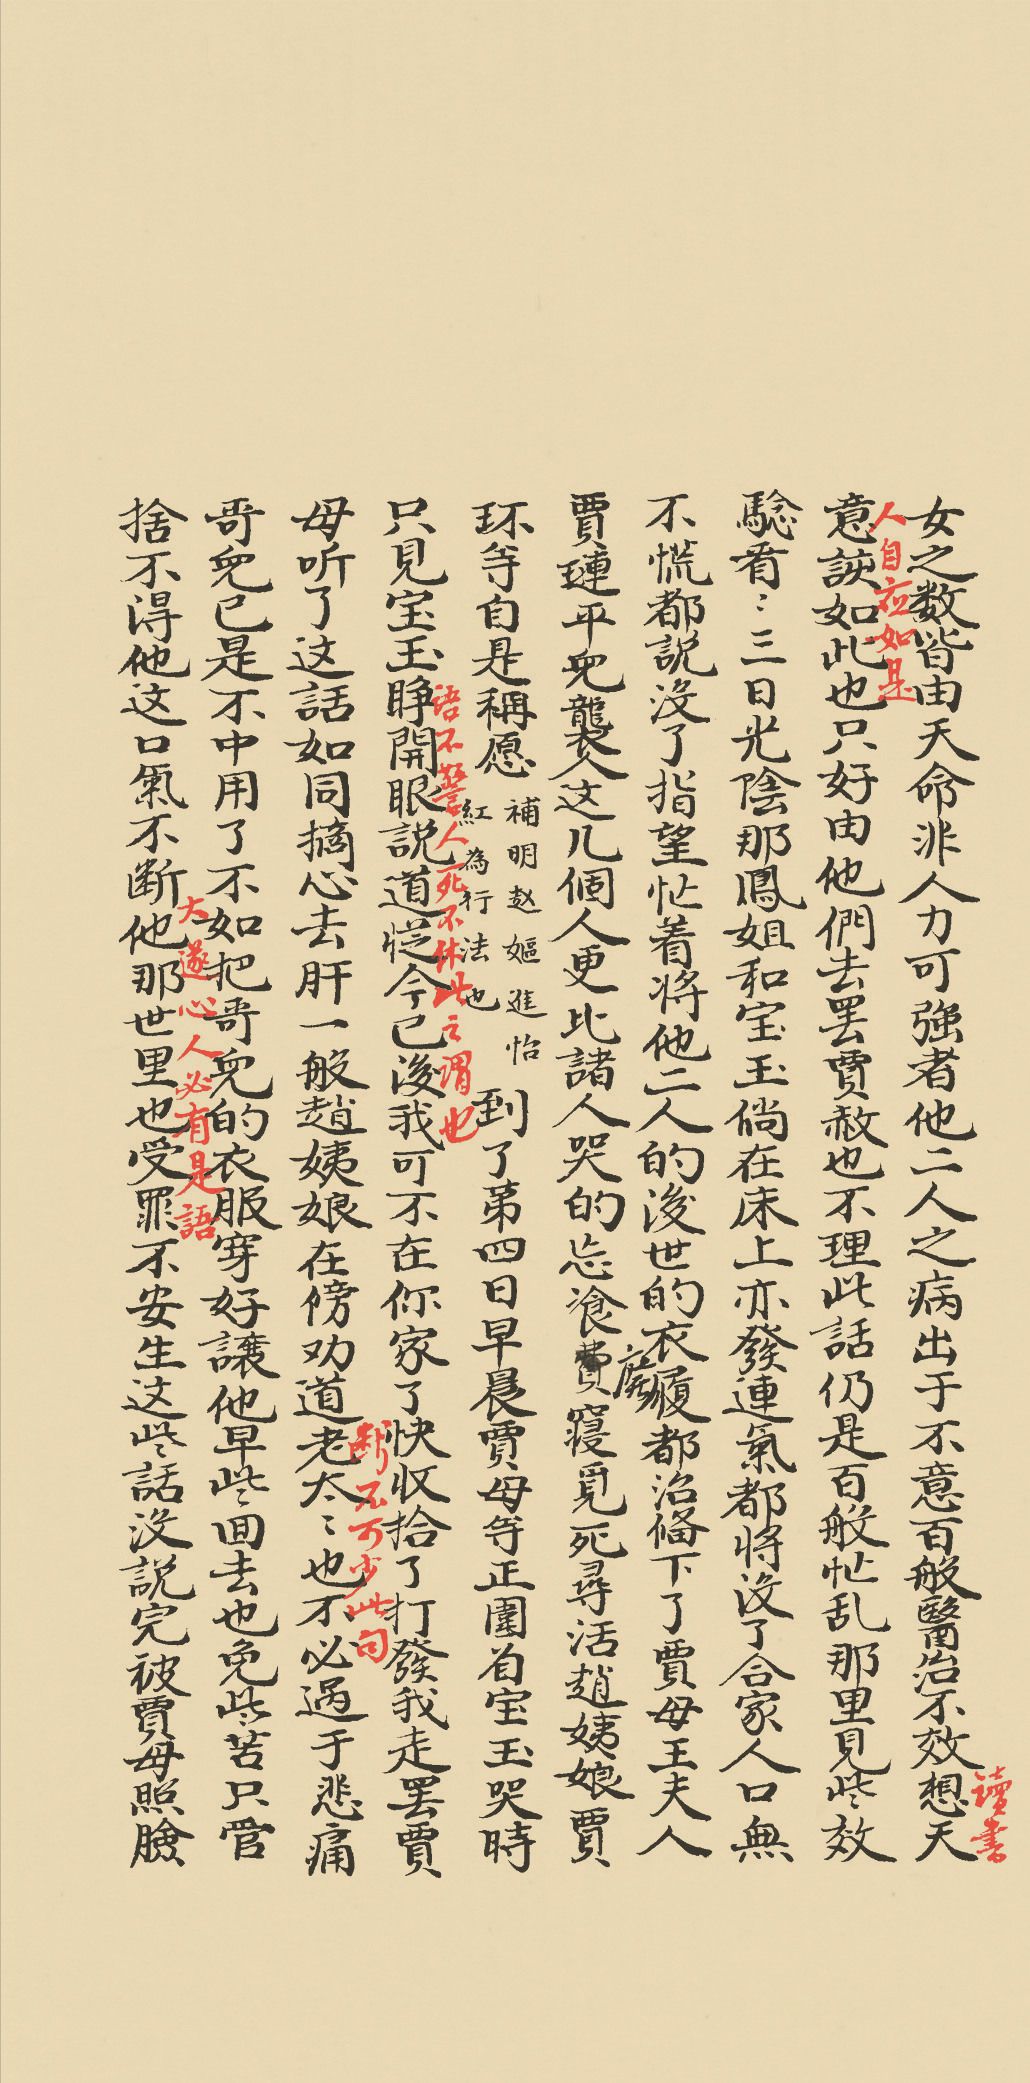 女之数皆由天命非人力可強者他二人之病出于不意百般醫治不效想天
讀書
人自应如是
意諒如此也只好由他們去罢賈赦也不理此話仍是百般忙乱那里見些效
騐看〻三日光陰那鳳姐和宝玉倘在床上亦發連氣都將没了合家人口無
不慌都説没了指望忙着將他二人的後世的衣履都治俻下了賈母王夫人
賈璉平兒襲人这几個人更比諸人哭的忘飡費寝覓死尋活趙姨娘賈
廢
环等自是稱愿
補明赵嫗進怡
紅為行法也
到了第四日早晨賈母等正圍着宝玉哭時
只見宝玉睁開眼説道従今已後我可不在你家了快收拾了打發我走罢賈
语不驚人死不休此之谓也
母听了这話如同摘心去肝一般趙姨娘在傍劝道老太〻也不必過于悲痛
断不可少此句
哥兒已是不中用了不如把哥兒的衣服穿好讓他早些囬去也免些苦只管
捨不得他这口氣不断他那世里也受罪不安生这些話没説完被賈母照臉
大遂心人必有是語